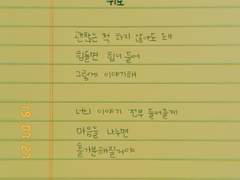 위로
괜찮은 척 하지 않아도 돼
힘들면 힘이 들어
그렇게 이야기해
너의 이야기 전부 들어줄게
마음을 나누면
홀가분해질거야